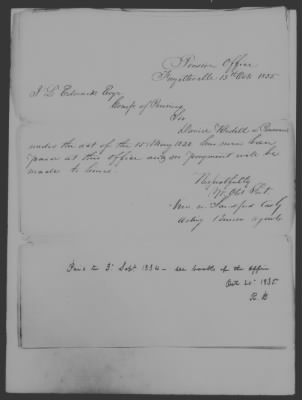 Pension Office
Fayetteville 13th Oct. 1835
J. L. Edwards Esqr
Comr of Pensions
Sir
Daniel a Pensioner
under the act of the 15 May 1828 has never been
paid at this office and no payment will be
made to him.
Respectfully
Yr Obt St
Acting Pension Agent
Paid to 3d Sept 1834 - see books of the office
Oct 20 1835